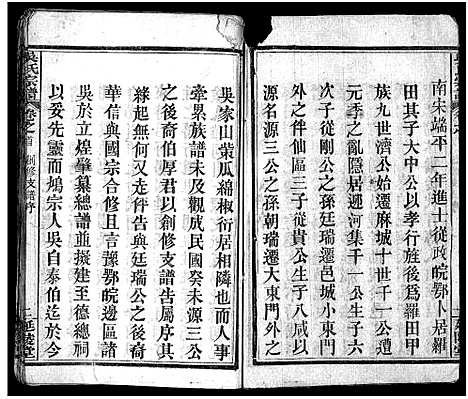 南宋端平二年進士從政皖鄂卜居羅
田其子大中公以孝行旌後爲羅田甲
族九世濟公始遷麻城十世千一公當
元季之亂隱居迎河集千一公生子六
次子從剛公之孫廷瑞遷邑城小東門
外居此區域三子從貴公生子八以三
源名源三公之孫朝瑞遷大東門外之
吳家山葉瓜綿椒衍居相隣也而人事
牽累族譜未及觀成民國癸未源三公
之後裔伯厚君以創修支譜告屬序其
緣起無何又走伻告與廷瑞公之後裔
華信與國宗合修且言豫鄂皖邊區諸
吳於立煌肇纂總譜並擬建至德總祠
以妥先靈而鳩宗人吳自泰伯以天
吳氏宗譜
卷之首
創修支譜序
二
延陵堂